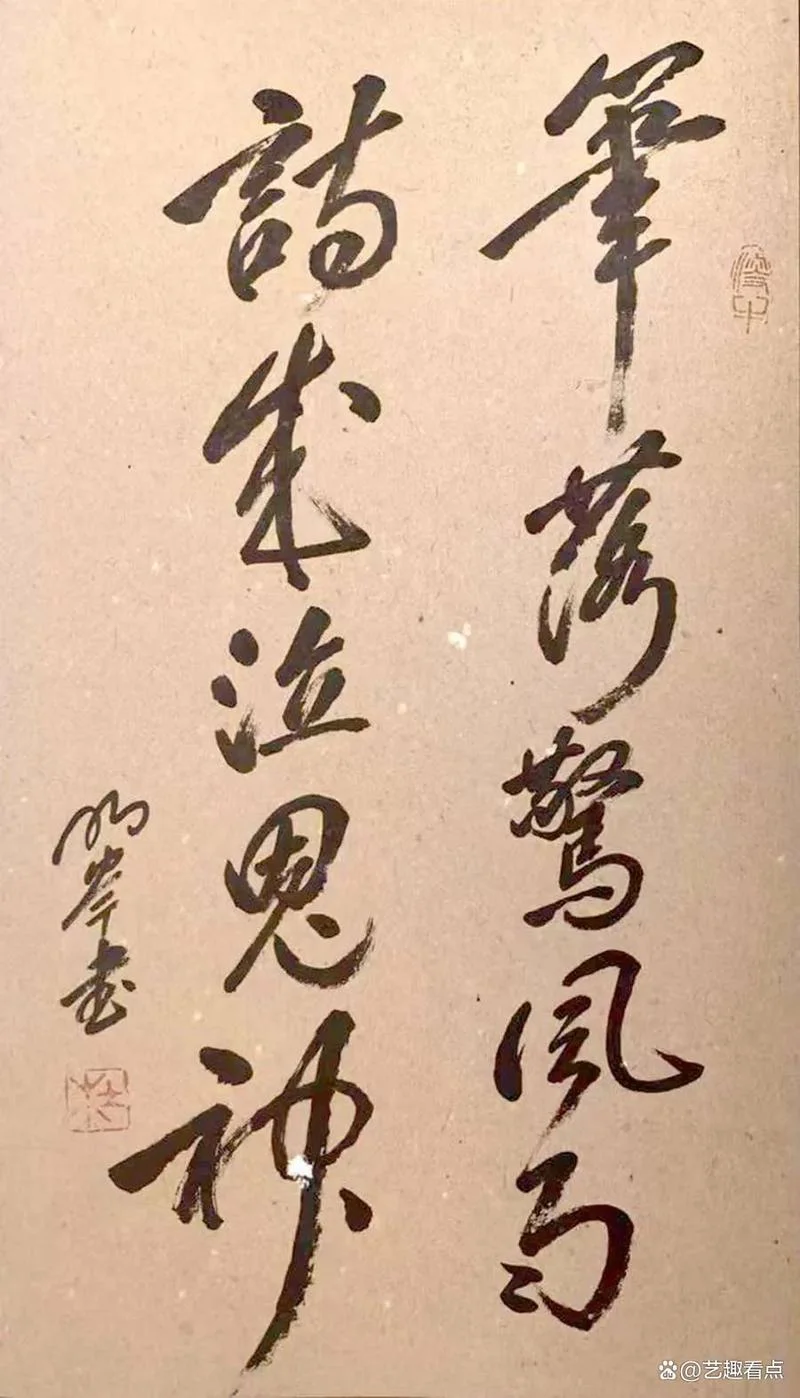 筆落驚風雨
詩成泣鬼神
明岑书
@艺趣看点